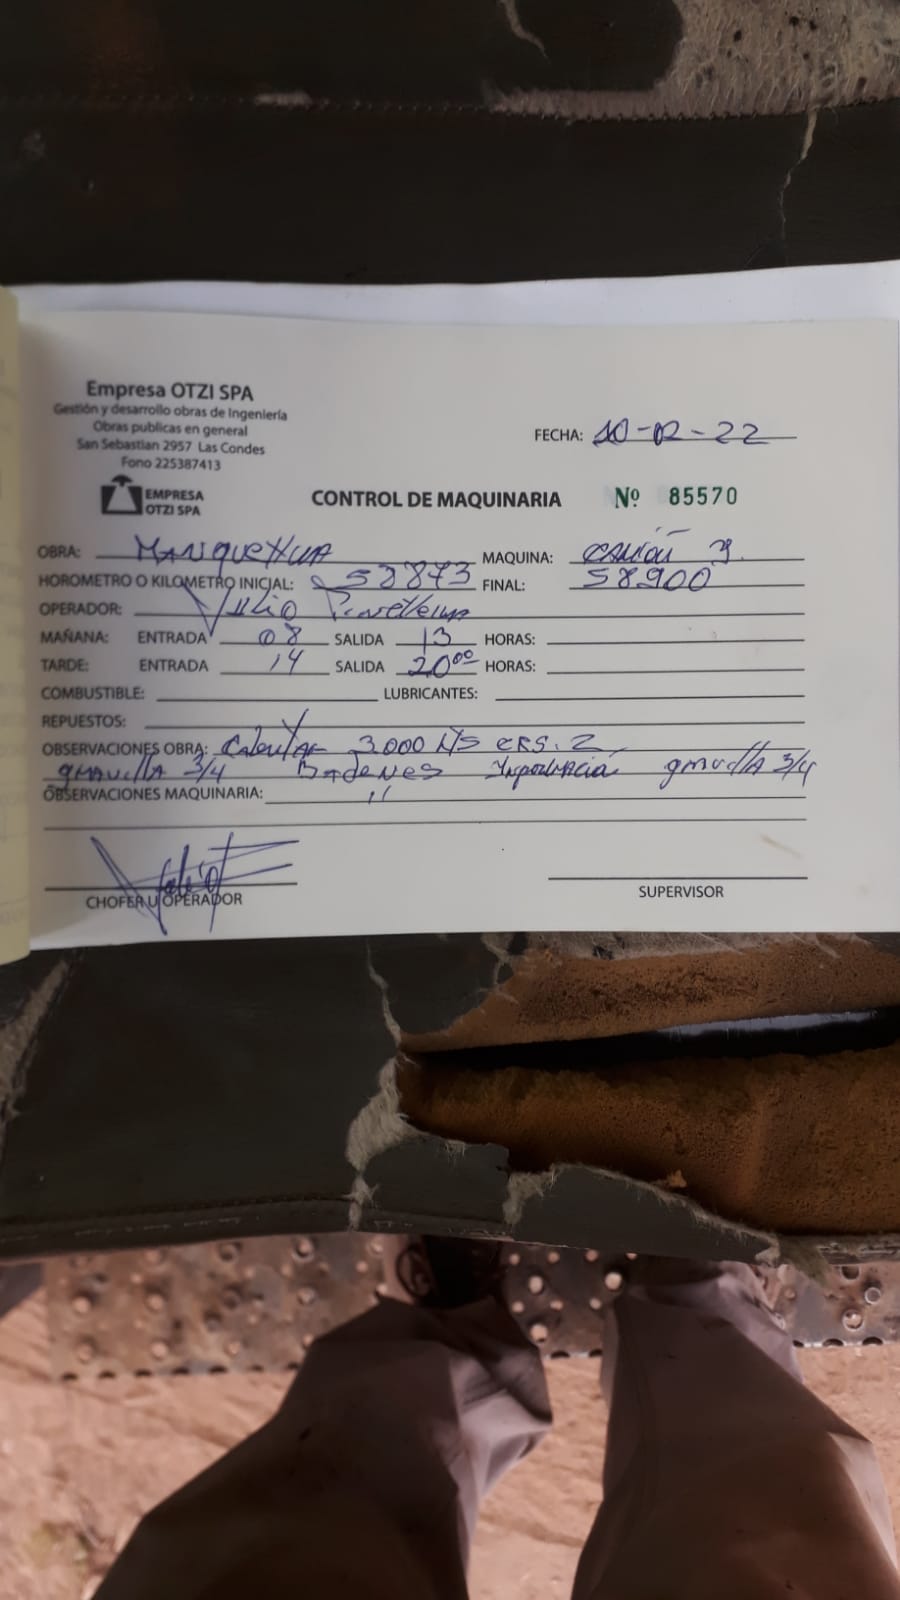 Empresa OTZI SPA
Gestión y desarrollo obras de Ingeniería
Obras publicas en general
San Sebastian 2957 Las Condes
Fono 225387413
EMPRESA
OTZI SPA
FECHA: 10-12-22
CONTROL DE MAQUINARIA Nº 85570
OBRA: MAQUINA: CAMIÓN
HOROMETRO O KILOMETRO INICIAL: 58873 FINAL: 58900
OPERADOR: Julio
MAÑANA: ENTRADA 08 SALIDA 13 HORAS:
TARDE: ENTRADA 14 SALIDA 20⁰⁰ HORAS:
COMBUSTIBLE: LUBRICANTES:
REPUESTOS:
OBSERVACIONES OBRA: Calentar 3.000 lts CRS. 2
gravilla 3/4 Badenes Imprimación gravilla 3/4
OBSERVACIONES MAQUINARIA: "
CHOFER U OPERADOR
SUPERVISOR